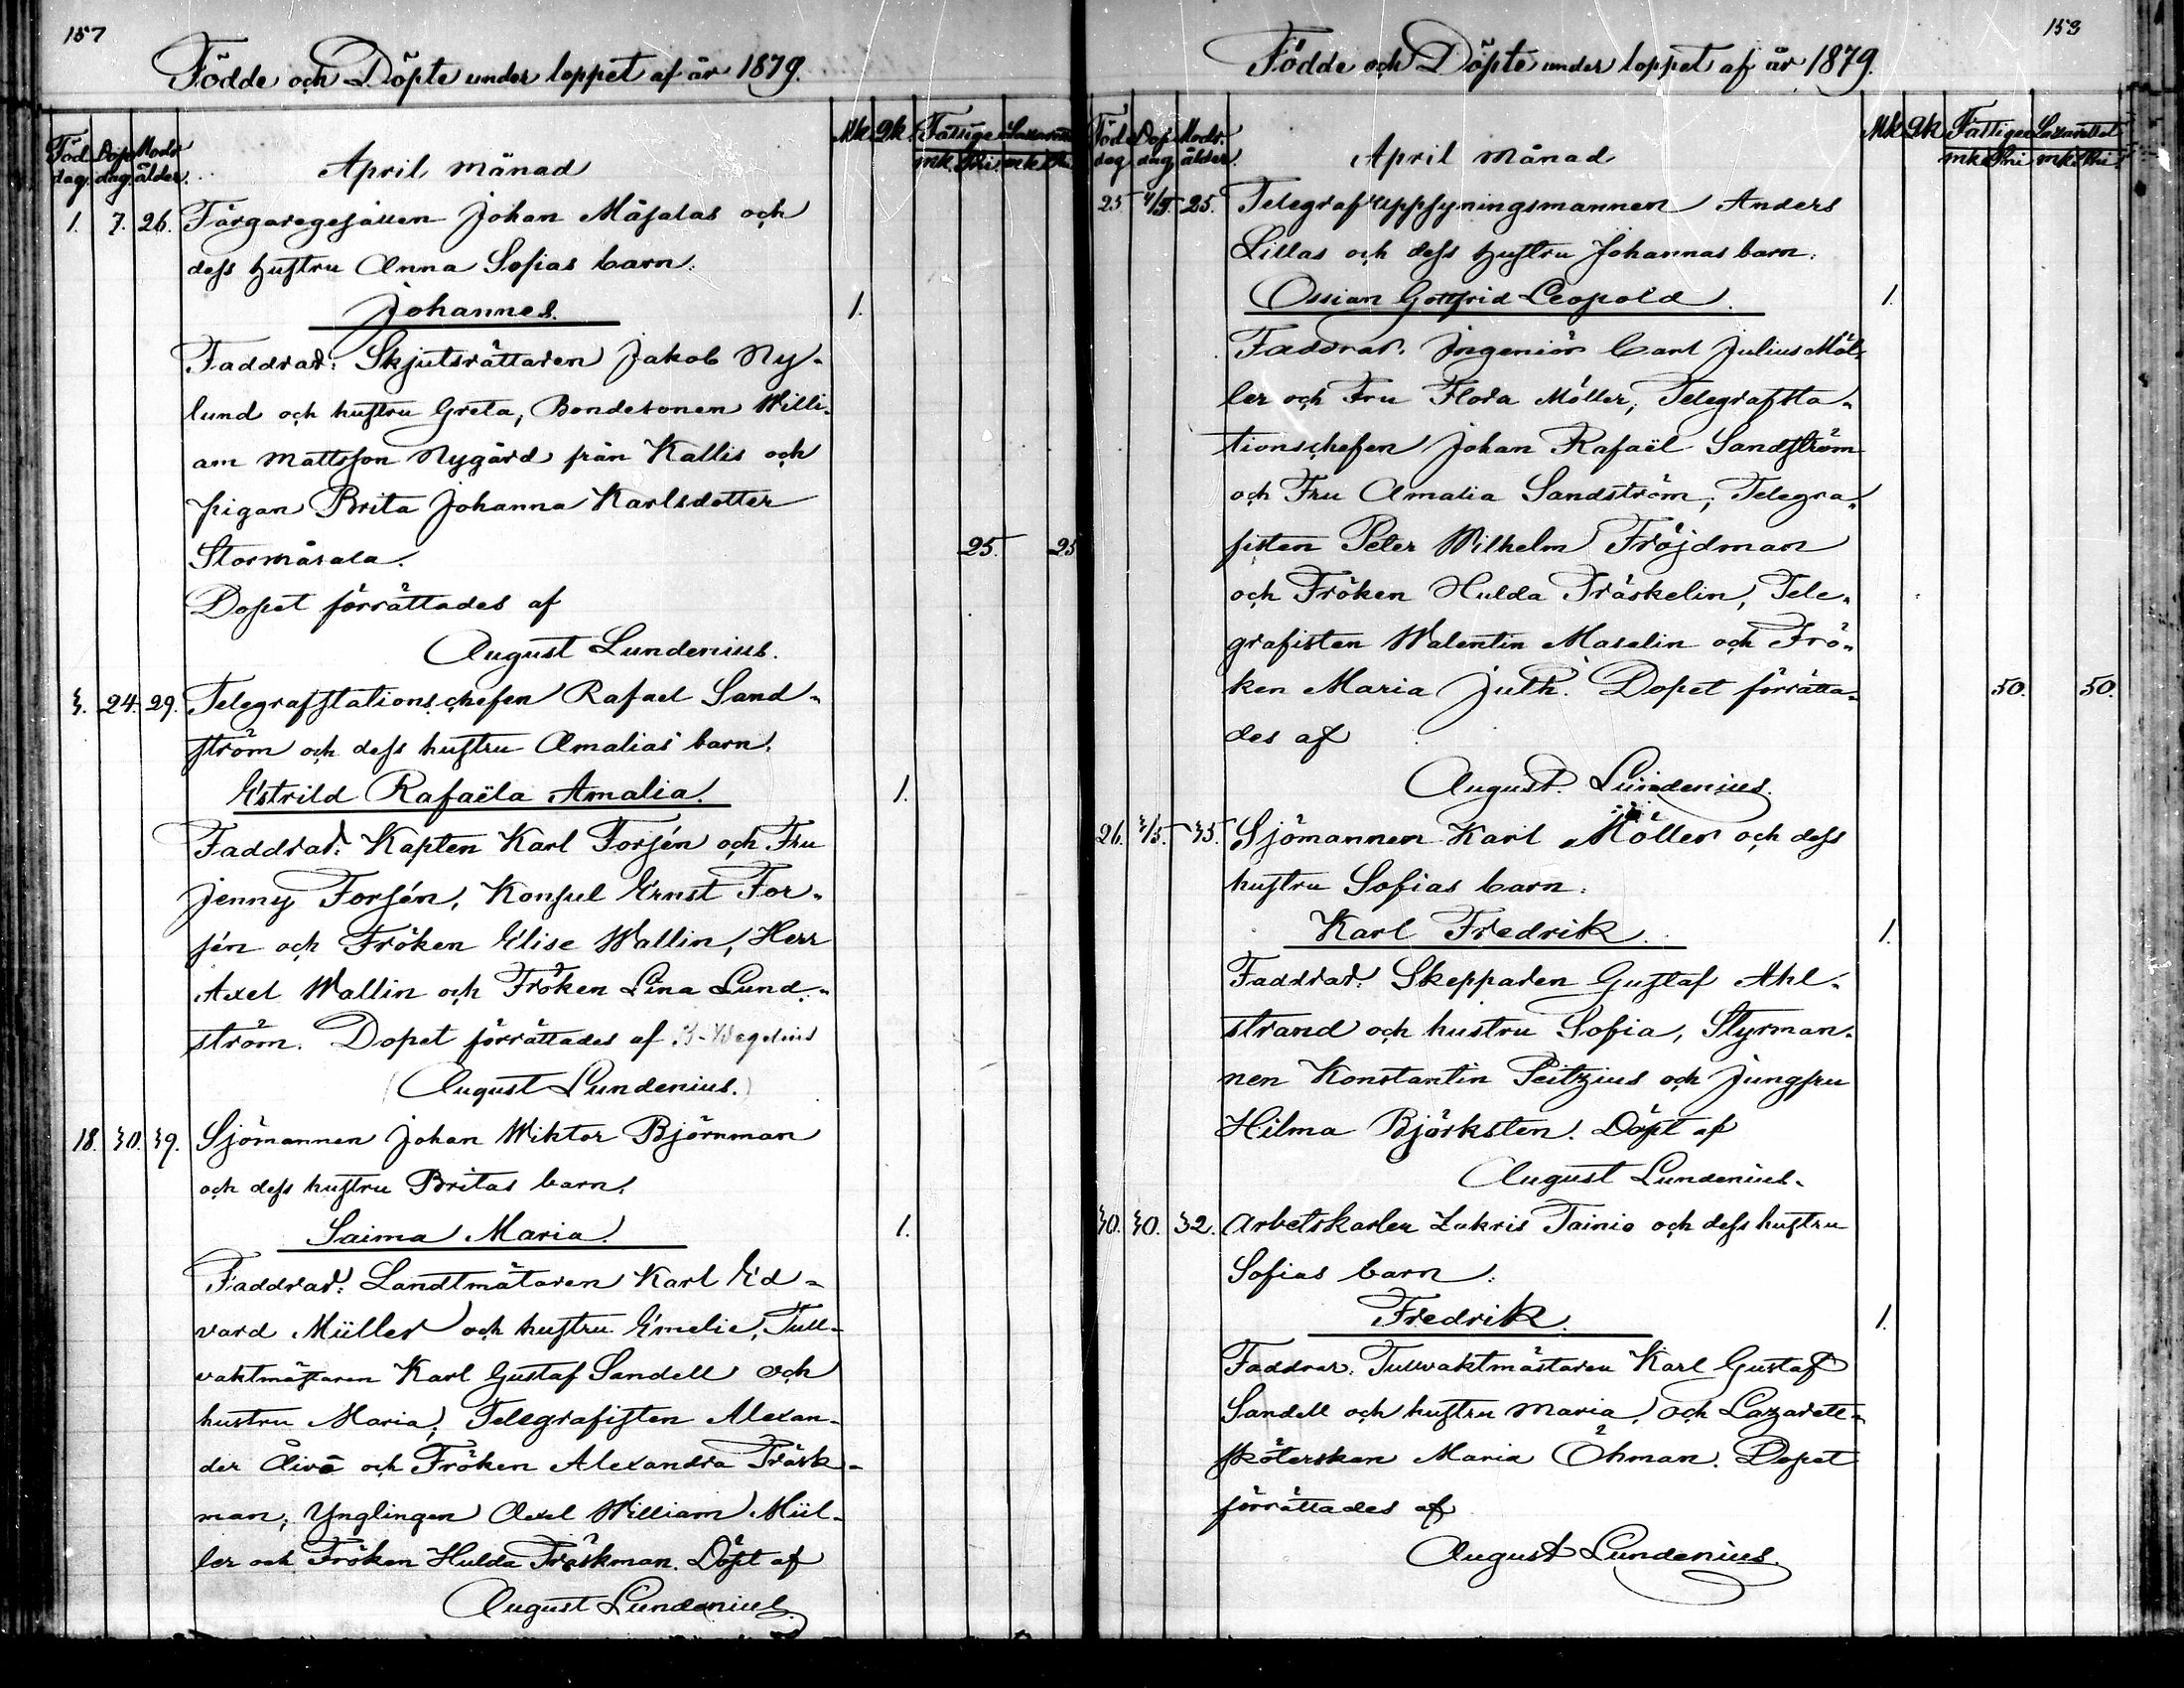 157
Födde och Döpte under loppet af år 1879.
Föd. dag. Dop dag. Mods ålder.
April månad
Mk. Qk. Fattige mk. Pni. Lazarett mk. Pni
1. 7. 26. Färgaregesällen Johan Måsalas och
dess hustru Anna Sofias barn:
Johannes. 1.
Faddrar: Skjutsrättaren Jakob Ny-
lund och hustru Greta, Bondesonen Willi-
am Mattsson Nygård från Kallis och
pigan Brita Johanna Karlsdotter
Stormåsala. 25. 25
Dopet förrättades af
August Lundenius.
3. 24. 29. Telegrafstationschefen Rafael Sand-
ström och dess hustru Amalias barn.
Estrild Rafaëla Amalia. 1.
Faddrar: Kapten Karl Forsén och Fru
Jenny Forsén, Konsul Ernst For-
sén och Fröken Elise Wallin, Herr
Axel Wallin och Fröken Lina Lund-
ström. Dopet förrättades af Wegelius
(August Lundenius.)
18. 30. 39. Sjömannen Johan Wiktor Björnman
och dess hustru Britas barn.
Saima Maria. 1.
Faddrar: Landtmätaren Karl Ed-
vard Müller och hustru Emelie, Tull-
vaktmästaren Karl Gustaf Sandell och
hustru Maria; Telegrafisten Alexan-
der och Fröken Alexandra Träsk-
man; Ynglingen Axel William Mül-
ler och Fröken Hulda Träskman. Döpt af
August Lundenius.
153
Födde och Döpte under loppet af år 1879.
Föd. dag Dop dag Mods. ålder.
April månad
Mk Qk Fattiges mk Pni Lazarettet mk Pni
25. 4/5. 25. Telegrafuppsyningsmannen Anders
Lillas och dess hustru Johannas barn:
Ossian Gottfrid Leopold. 1.
Faddrar. Ingeniör Carl Julius Möl-
ler och Fru Flora Möller, Telegrafsta-
tionschefen Johan Rafaël Sandström
och Fru Amalia Sandström, Telegra-
fisten Peter Wilhelm Fröjdman
och Fröken Hulda Träskelin, Tele-
grafisten Walentin Maselin och Frö-
ken Maria Juth. Dopet förrätta- 50. 50.
des af
August Lundenius.
26. 3/5. 35. Sjömannen Karl Möller och dess
hustru Sofias barn:
Karl Fredrik. 1.
Faddrar: Skepparen Gustaf Ahl-
strand och hustru Sofia, Styrman-
nen Konstantin Peitzius och Jungfru
Hilma Björksten. Döpt af
August Lundenius.
30. 30. 32. Arbetskarlen Zakris Tainio och dess hustru
Sofias barn:
Fredrik. 1.
Faddrar: Tullvaktmästaren Karl Gustaf
Sandell och hustru Maria, och Lazarett-
sköterskan Maria Öhman. Dopet
förrättades af
August Lundenius.